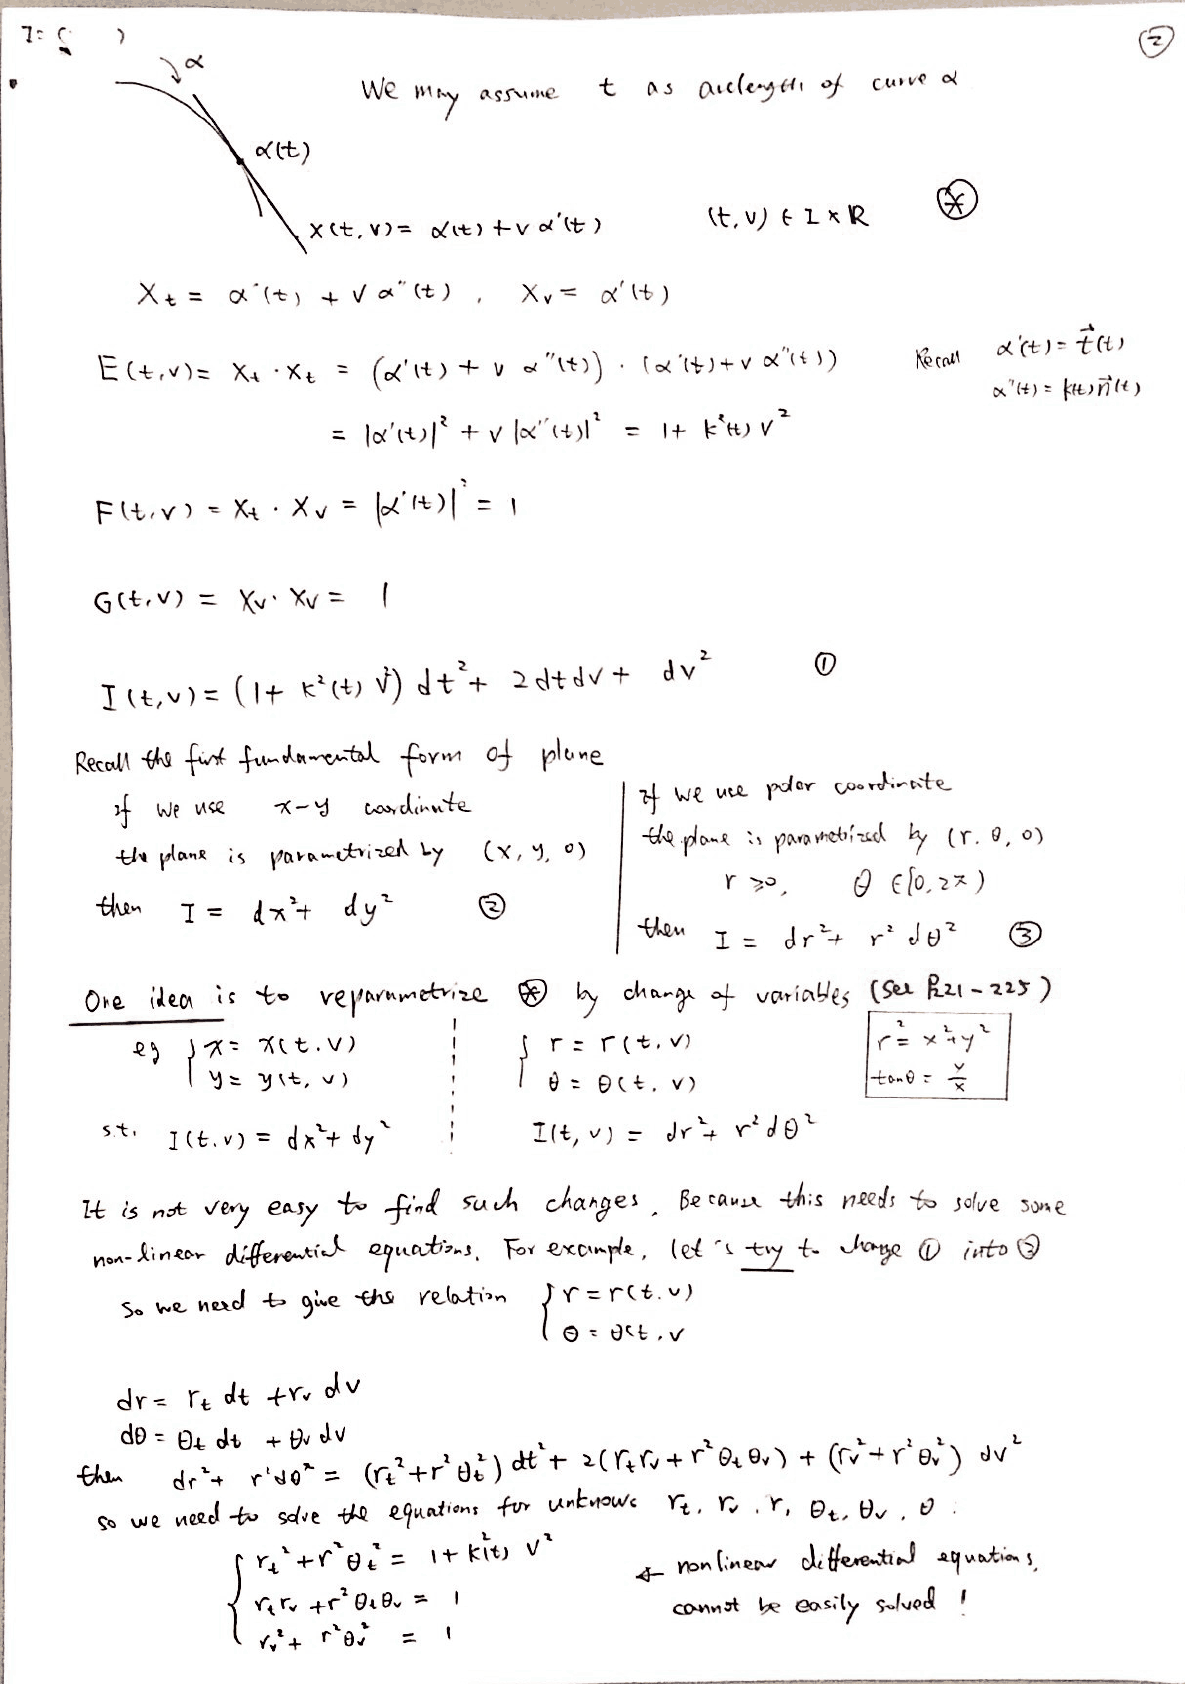 ②
α
We may assume t as arclength of curve α
α(t)
X(t, v) = α(t) + v α'(t) (t, v) ∈ I × R ⊛
X_t = α'(t) + v α''(t), X_v = α'(t)
E(t,v) = X_t · X_t = (α'(t) + v α''(t)) · (α'(t) + v α''(t)) Recall α'(t) = \vec{t}(t)
α''(t) = k(t) \vec{n}(t)
= |α'(t)|² + v |α''(t)|² = 1 + k²(t) v²
F(t,v) = X_t · X_v = |α'(t)|² = 1
G(t,v) = X_v · X_v = 1
I(t,v) = (1 + k²(t) v²) dt² + 2dtdv + dv² ①
Recall the first fundamental form of plane
if we use x-y coordinate
the plane is parametrized by (x, y, 0)
then I = dx² + dy² ②
if we use polar coordinate
the plane is parametrized by (r, θ, 0)
r ≥ 0, θ ∈ [0, 2π)
then I = dr² + r² dθ² ③
One idea is to reparametrize ⊛ by change of variables (See P221-225)
eg { x = x(t, v)
y = y(t, v)
s.t. I(t,v) = dx² + dy²
{ r = r(t, v)
θ = θ(t, v)
I(t, v) = dr² + r² dθ²
r² = x² + y²
tanθ = y/x
It is not very easy to find such changes. Because this needs to solve some
non-linear differential equations. For example, let's try to change ① into ③
So we need to give the relation { r = r(t, v)
θ = θ(t, v
dr = r_t dt + r_v dv
dθ = θ_t dt + θ_v dv
then dr² + r²dθ² = (r_t² + r²θ_t²) dt² + 2(r_t r_v + r² θ_t θ_v) + (r_v² + r²θ_v²) dv²
so we need to solve the equations for unknows r_t, r_v, r, θ_t, θ_v, θ.
{ r_t² + r²θ_t² = 1 + k²(t) v²
r_t r_v + r² θ_t θ_v = 1
r_v² + r²θ_v² = 1
← nonlinear differential equations,
cannot be easily solved !